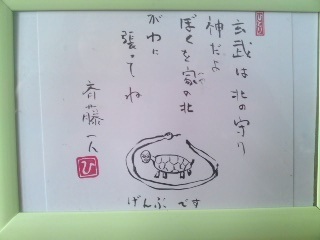 玄武は北の守り
神だよ
ぼくを家の北
がわに
張ってね
斉藤一人
ひ
げんぶです